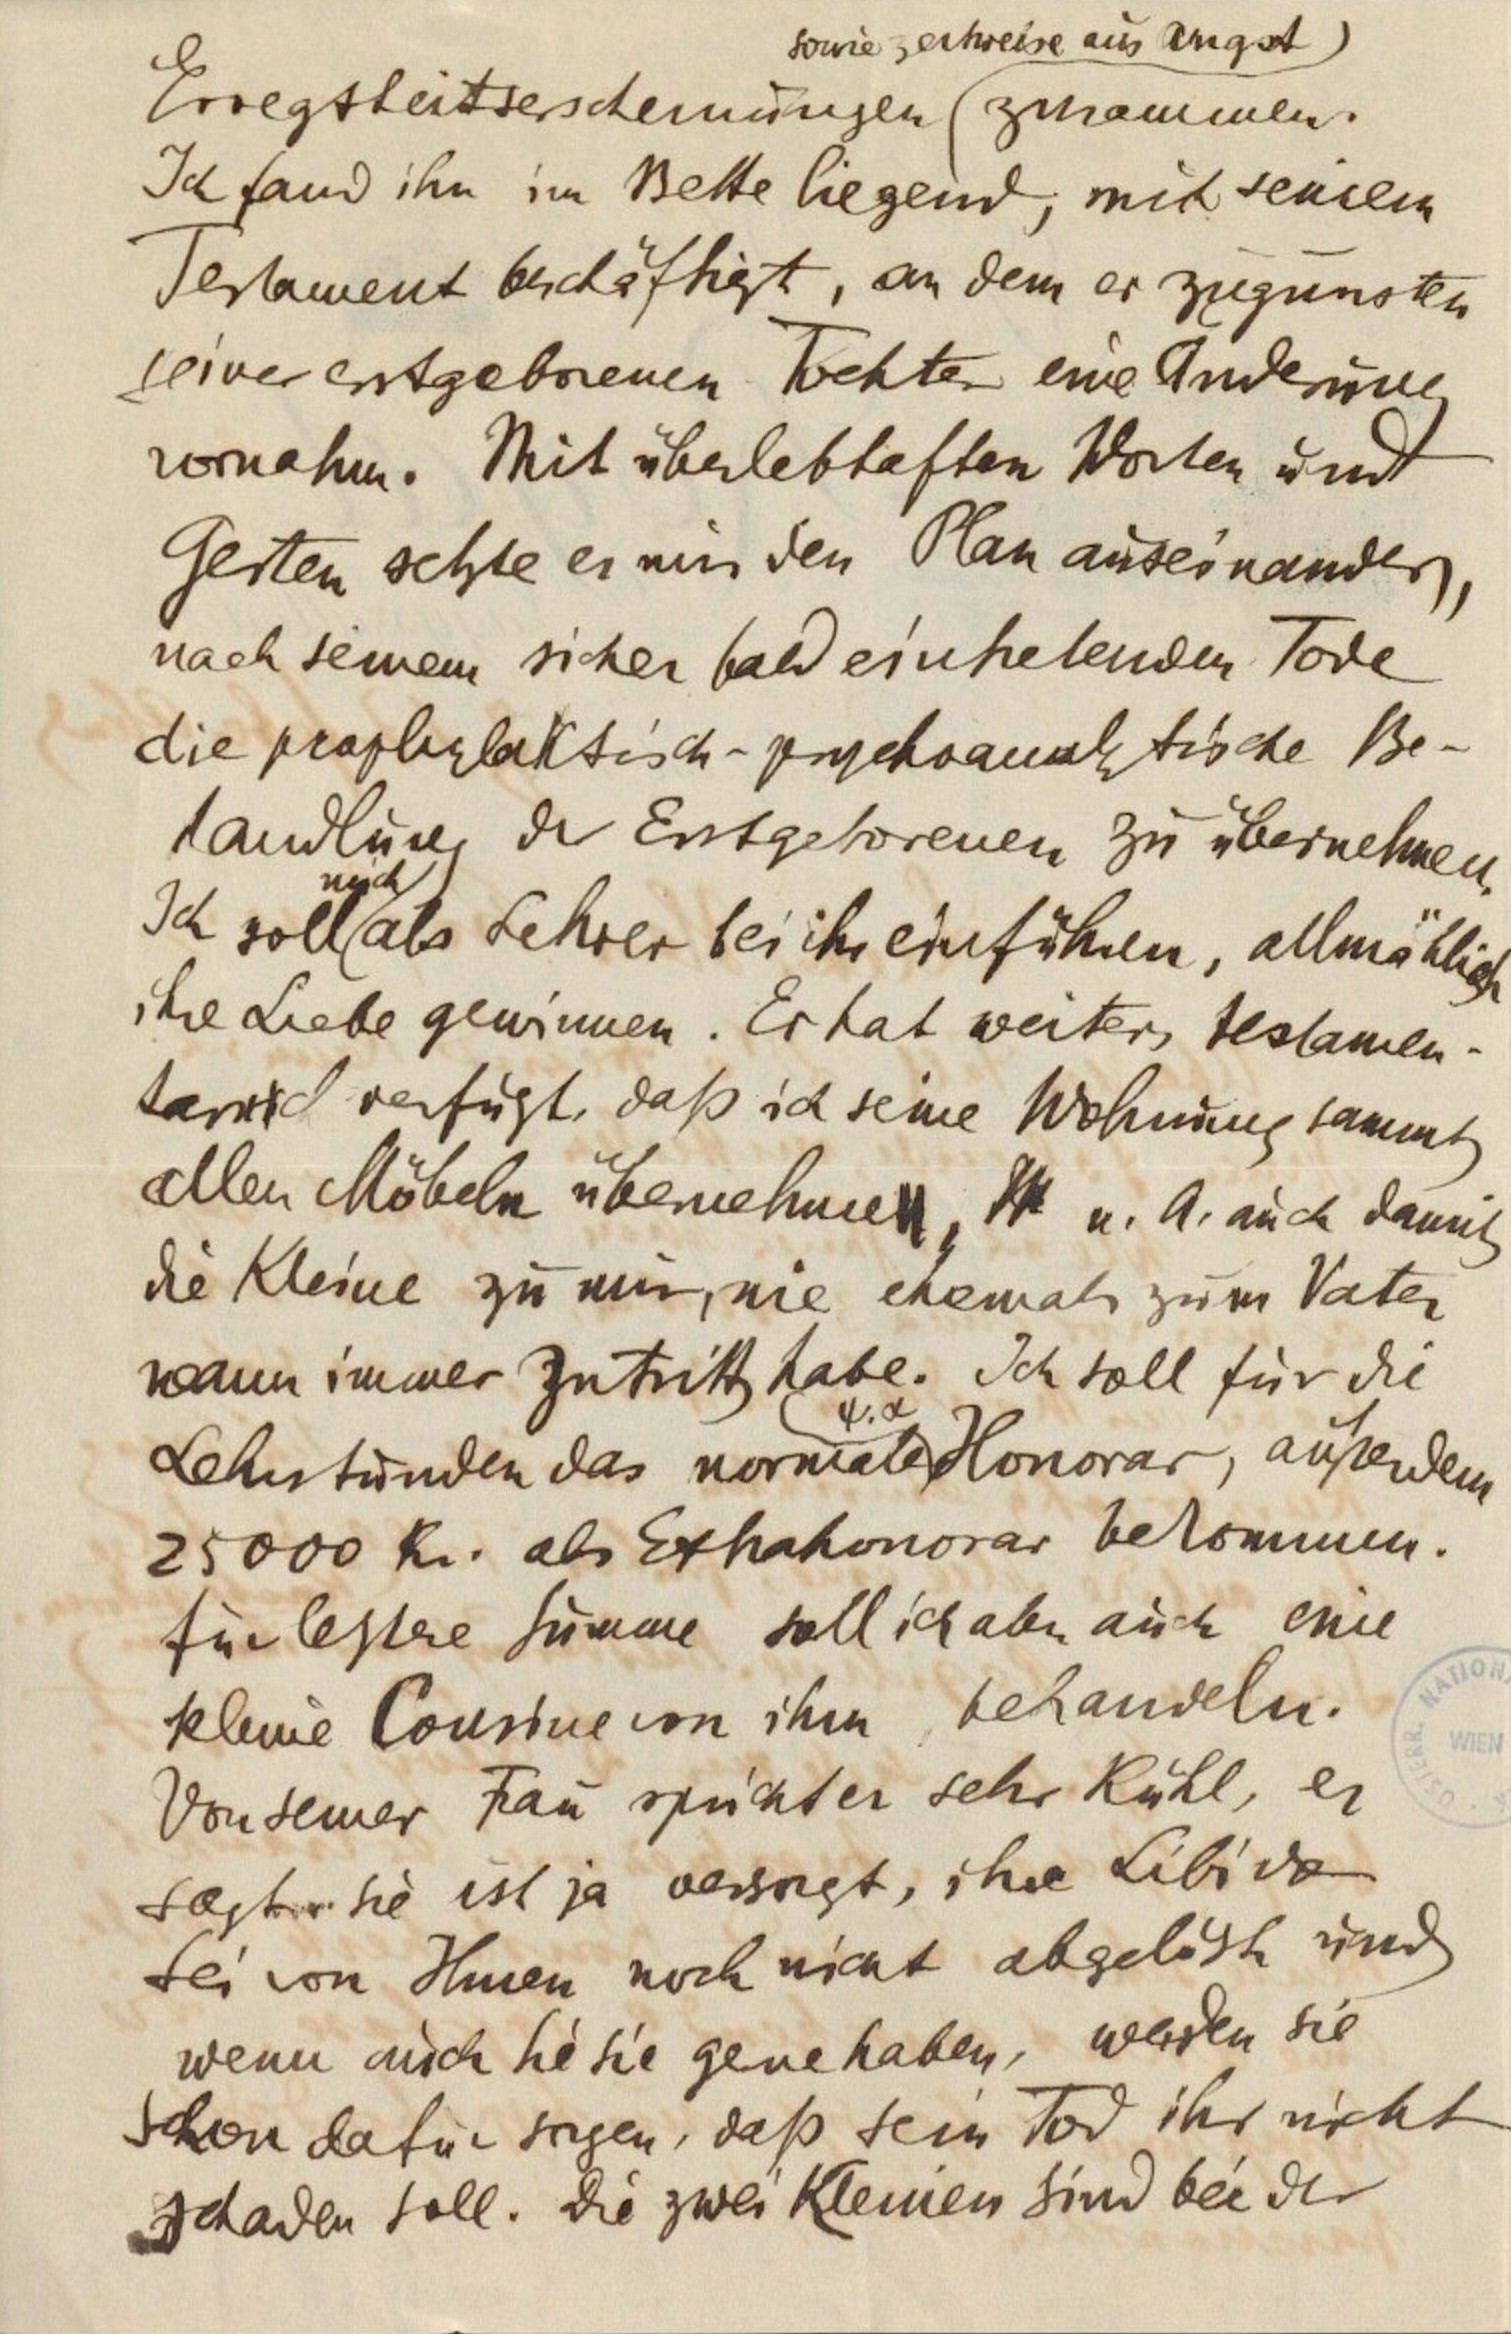 sowie zeitweise aus Angst)
Erregtheitserscheinungen (zusammen.
Ich fand ihn im Bette liegend, mit seinem
Testament beschäftigt, an dem er zugunsten
seiner erstgeborenen Tochter eine Änderung
vornahm. Mit überlebhaften Worten und
Gesten setzte er mir den Plan auseinander,
nach seinem sicher bald eintretenden Tode
die prophylaktisch-psychoanalytische Be-
handlung der Erstgeborenen zu übernehmen.
mich
Ich soll (als Lehrer bei ihr einführen, allmählich
ihre Liebe gewinnen. Er hat weiters testamen-
tarisch verfügt, daß ich seine Wohnung sammt
allen Möbeln übernehmen, u. A. auch damit
die Kleine zu mir, wie ehemals zum Vater
wann immer Zutritt habe. Ich soll für die
ψ.α
Lehrstunden das normale Honorar, außerdem
25000 Kr. als Extrahonorar bekommen.
für letztere Summe soll ich aber auch eine
kleine Cousine von ihm behandeln.
Von seiner Frau spricht er sehr kühl, er
sagt sie ist ja versorgt, ihre Libido
sei von Ihnen noch nicht abgelöst und
wenn auch sie sie gerne haben, werden sie
schon dafür sorgen, daß sein Tod ihr nicht
schaden soll. Die zwei Kleinen sind bei der
ÖSTERR. NATION
WIEN